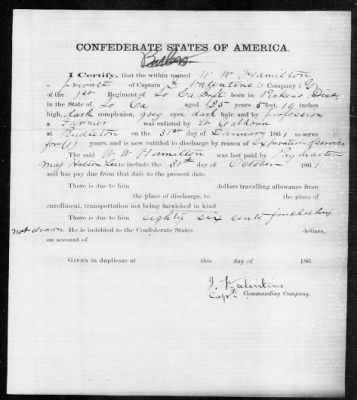 CONFEDERATE STATES OF AMERICA.
I Certify, that the within named W W Hamilton
a private of Captain J Valentine's Company (D)
of the 1st Regiment of So Ca born in Pickens Dist
in the State of So Ca aged 25 years 5 feet 10 inches
high, dark complexion, grey eyes, dark hair, and by profession
a Farmer was enlisted by Calhoun
at Pendleton on the 31st day of January 1861 to serve
for (1) years, and is now entitled to discharge by reason of Expiration of service
The said W W Hamilton was last paid by Paymaster
Maj to include the 30th day of October 1861
and has pay due from that date to the present date.
There is due to him dollars travelling allowance from
the place of discharge, to the place of
enrollment, transportation not being furnished in kind
There is due to him eighty six cents for clothing
not drawn He is indebted to the Confederate States dollars,
on account of
GIVEN in duplicate at this day of 186
J. Valentine
Capt. Commanding Company.